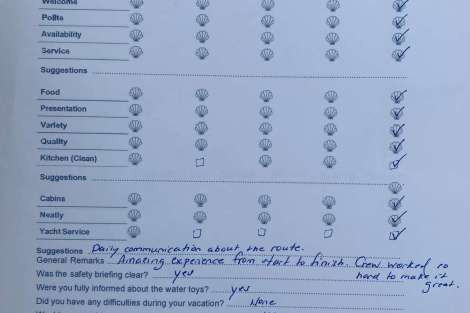 Welcome
Polite
Availability
Service
Suggestions
Food
Presentation
Variety
Quality
Kitchen (Clean)
Suggestions
Cabins
Neatly
Yacht Service
Suggestions Daily communication about the route.
General Remarks Amazing experience from start to finish. Crew worked so
hard to make it
great.
Was the safety briefing clear? yes
Were you fully informed about the water toys? yes
Did you have any difficulties during your vacation? None